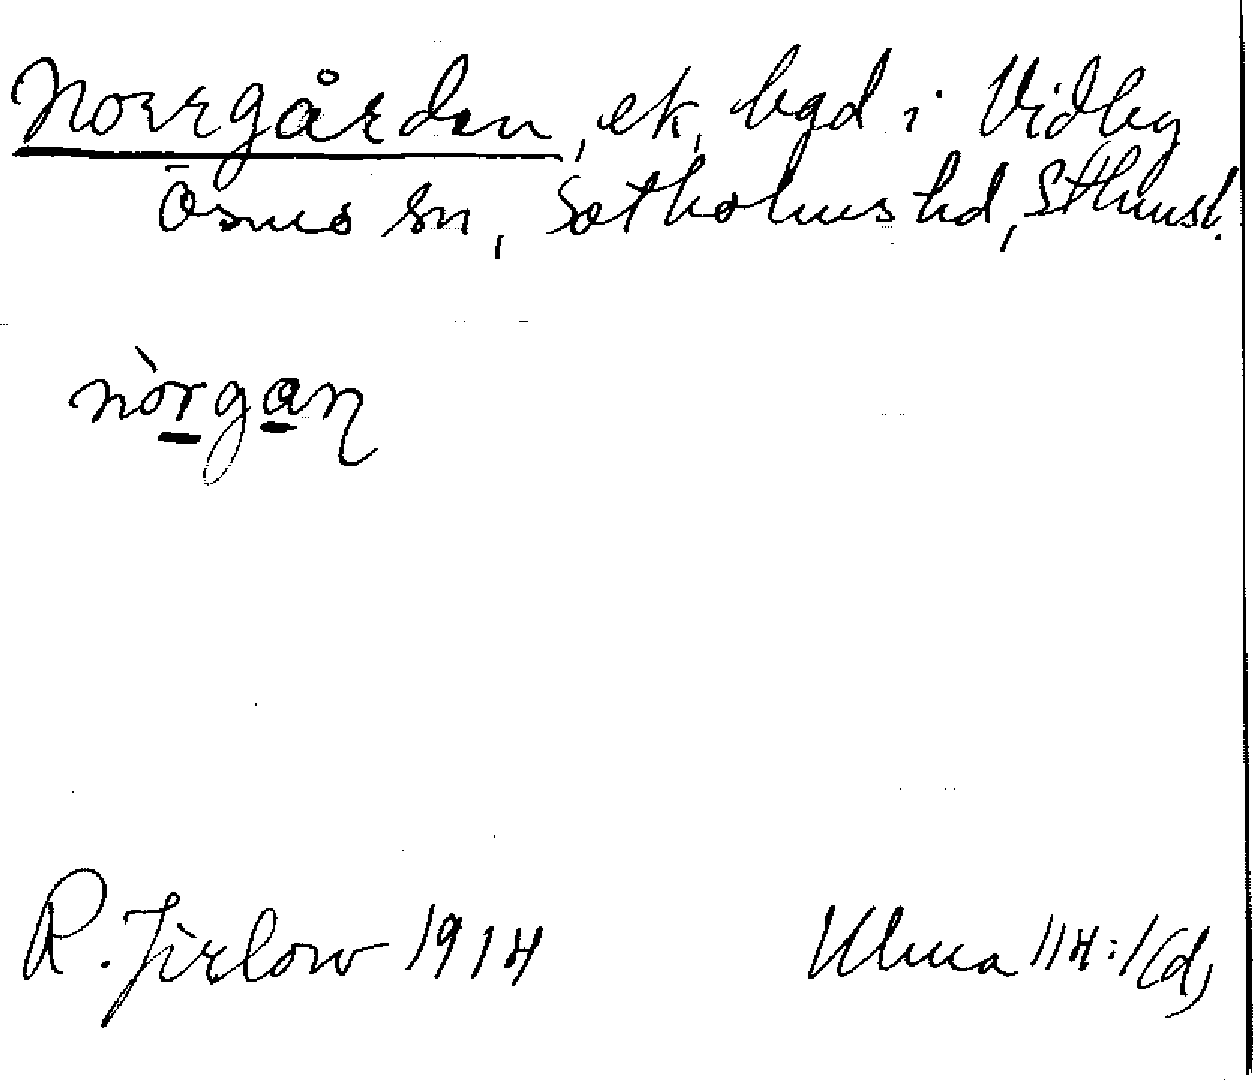 Norrgården, ek, bgd i Vidby
Ösmo sn, Sotholms hd, Sthmsl.
nòrgaɳ
R. Jirlow 1914
Ulma 114:1(d)